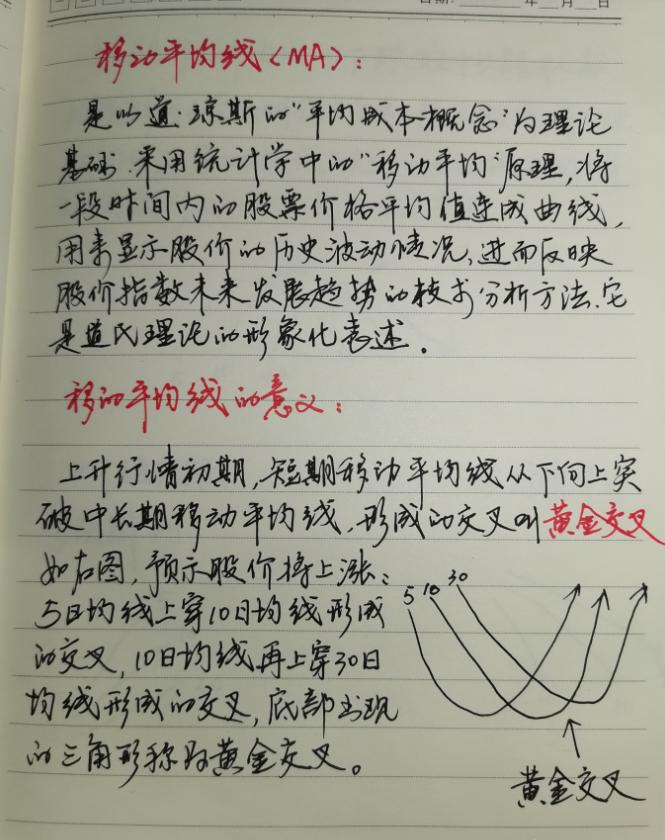 日期: 年 月 日
移动平均线(MA):
是以道·琼斯的"平均成本概念"为理论
基础.采用统计学中的"移动平均"原理,将
一段时间内的股票价格平均值连成曲线,
用来显示股价的历史波动情况,进而反映
股价指数未来发展趋势的技术分析方法.它
是道氏理论的形象化表述.
移动平均线的意义:
上升行情初期,短期移动平均线从下向上突
破中长期移动平均线,形成的交叉叫黄金交叉
如右图,预示股价将上涨:
5日均线上穿10日均线形成
的交叉,10日均线再上穿30日
均线形成的交叉,底部出现
的三角形称为黄金交叉。
5 10 30
黄金交叉